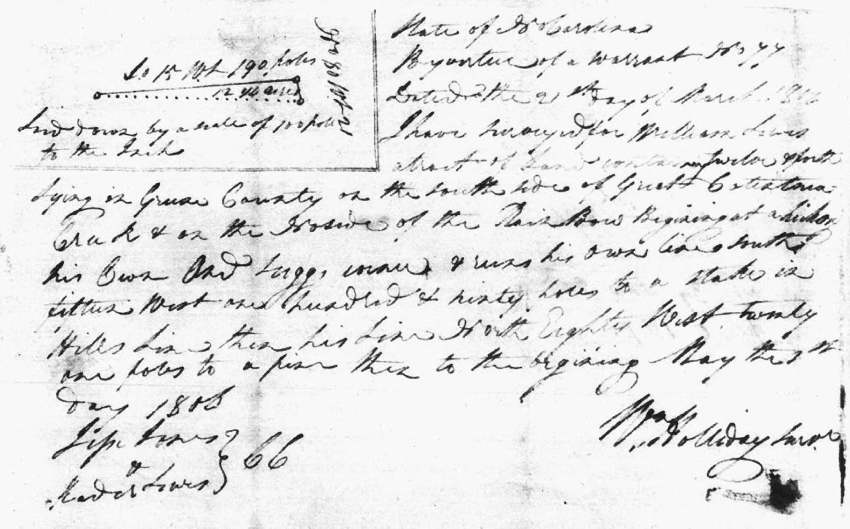 So 15 Wt 190 poles
No 80 Wt 21
12 44 acres
Laid down by a scale of 100 poles
to the Inch
State of No Carolina
By vertue of a Warrant No 77
Dated the 2d day of March
I have Surveyed for William Lewis
a tract of Land Twelve &
Lying in Green County on the South side of Great
Creek & on the No side of the Rain Bow Begining at a
his Own And Suggs corner & runs his Own line South
fifteen West one hundred & ninty poles to a stake in
Hills Line then his Line North Eighty West twenty
one poles to a pine then to the begining May the 8th
day 1806
Jones
& Lewis } CC
Wm Holliday Survr